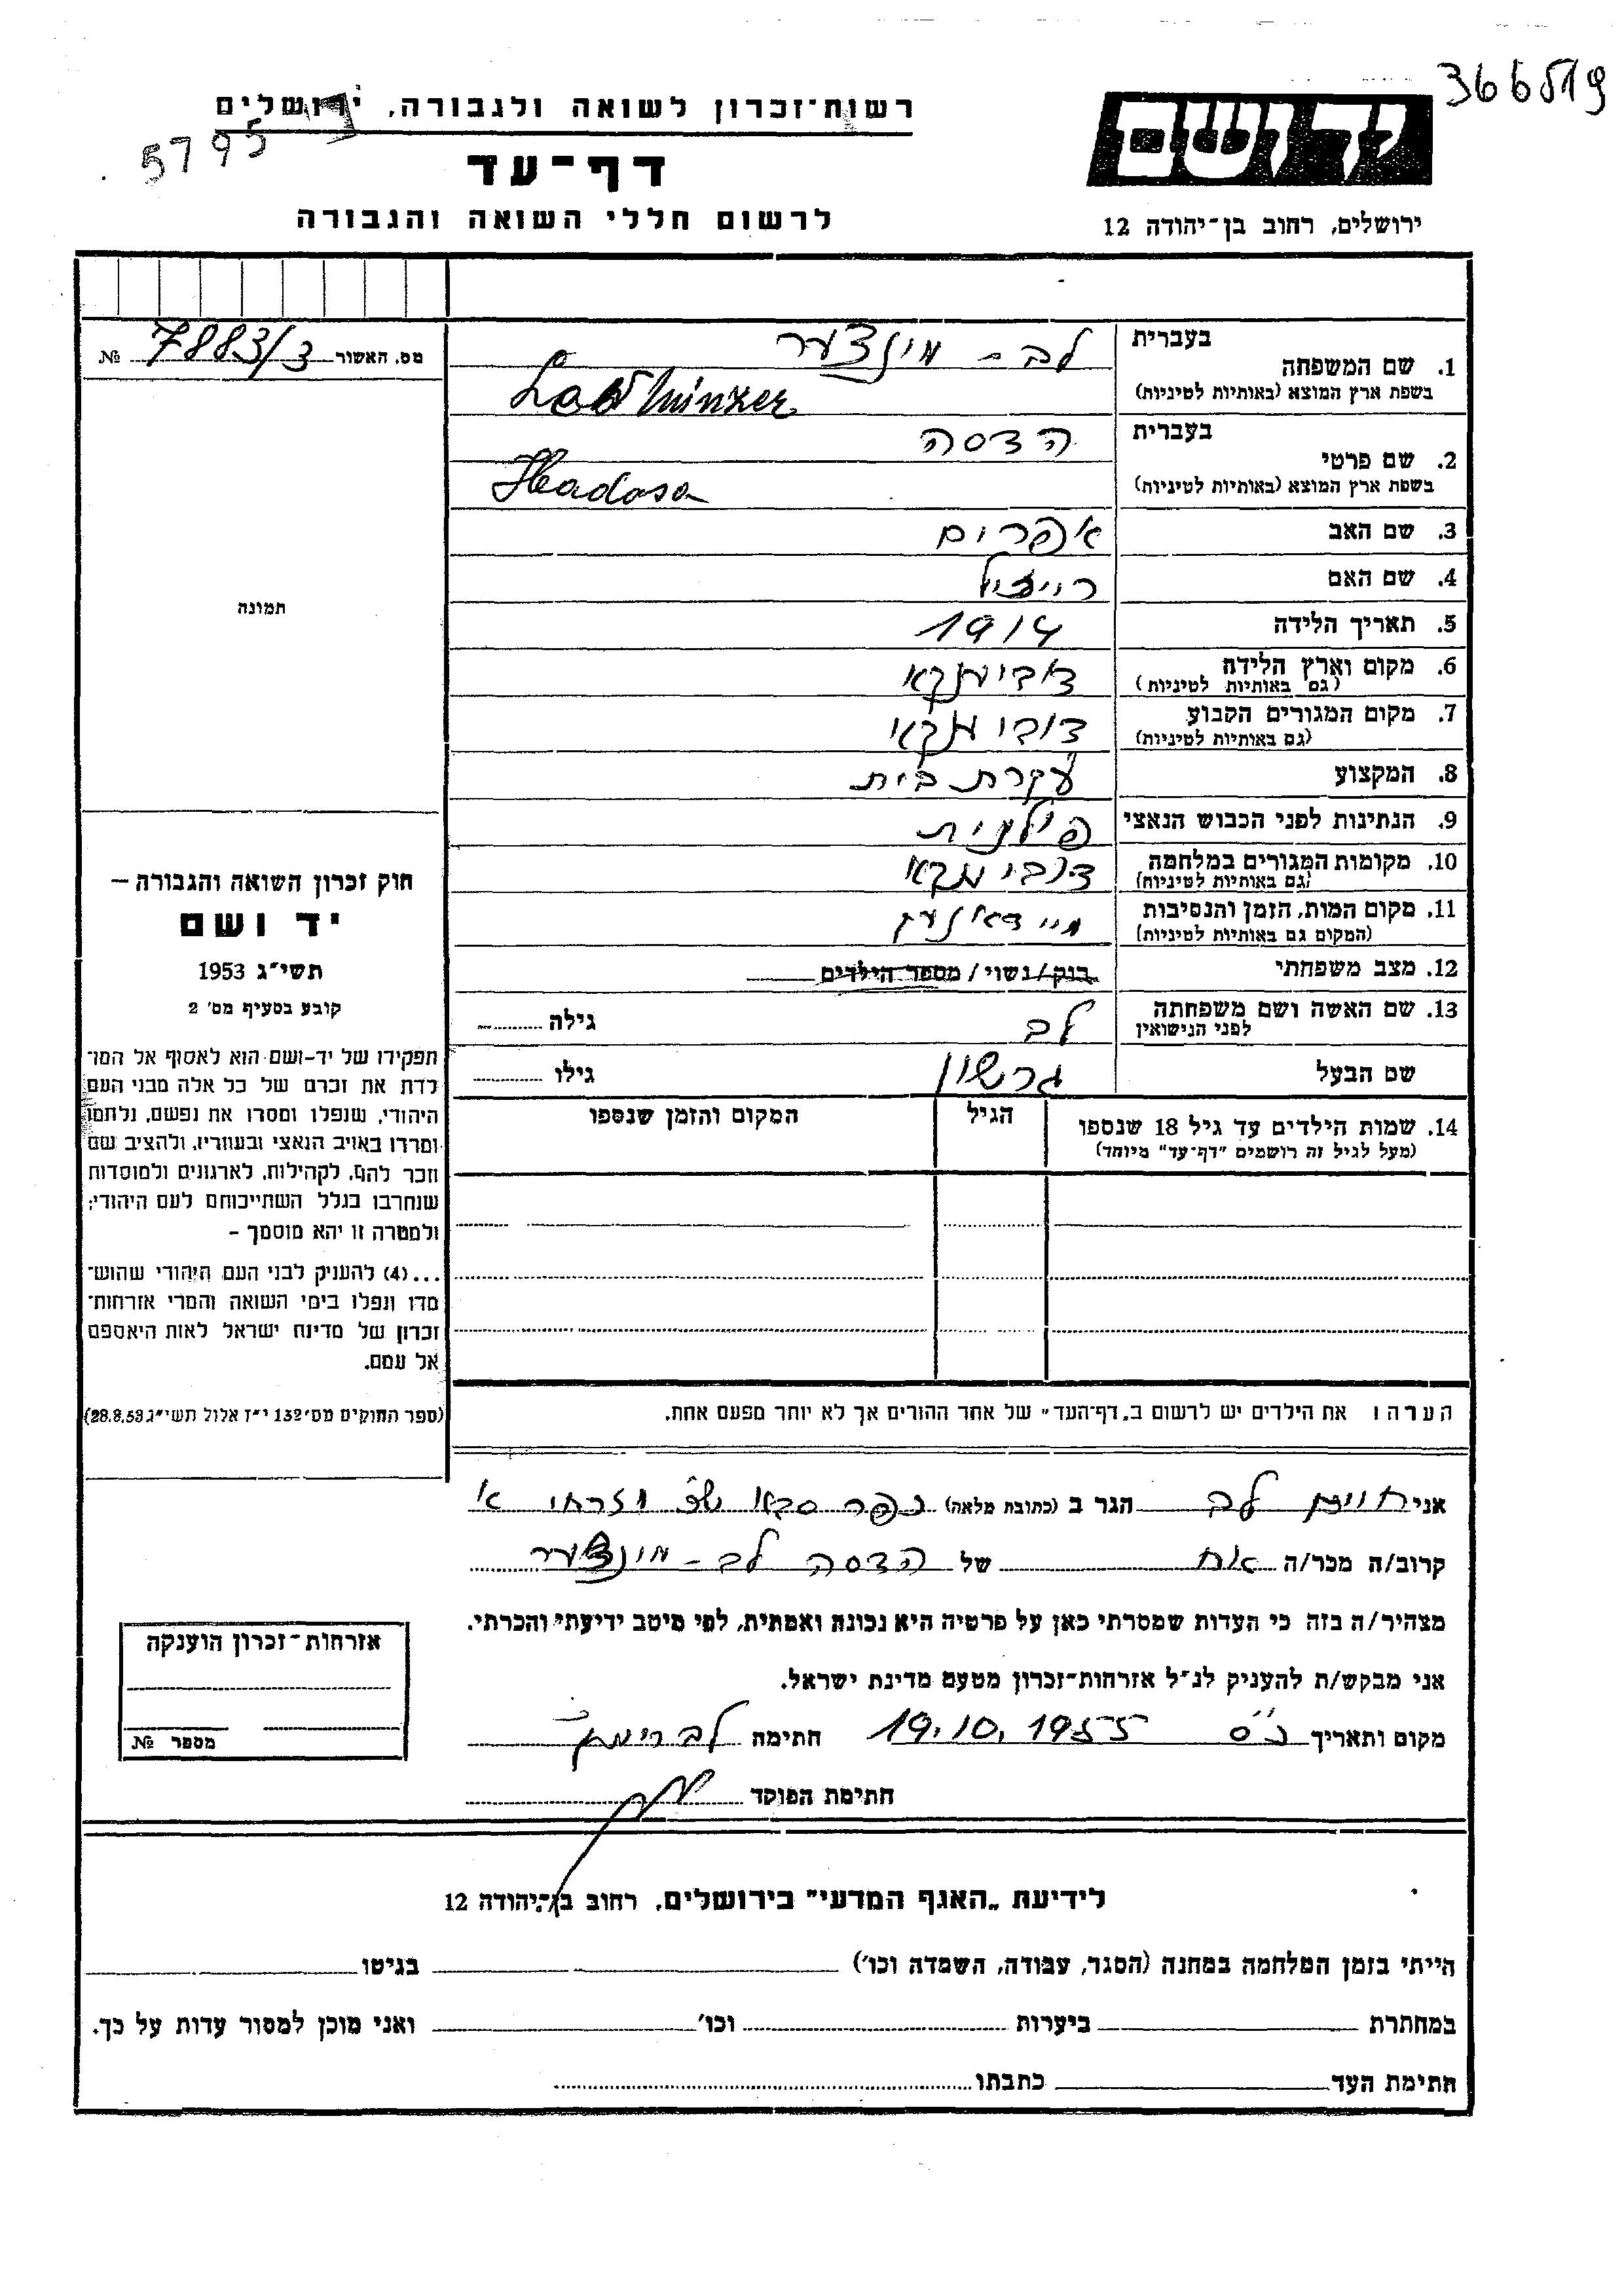 366519
רשות-זכרון לשואה ולגבורה, ירושלים
5795
דף-עד
לרשום חללי השואה והגבורה
יד ושם
ירושלים, רחוב בן-יהודה 12
מס. האשור 7883/3 №
תמונה
חוק זכרון השואה והגבורה —
יד ושם
תשי״ג 1953
קובע בסעיף מס׳ 2
תפקידו של יד-ושם הוא לאסוף אל המו־
לדת את זכרם של כל אלה מבני העם
היהודי, שנפלו ומסרו את נפשם, נלחמו
ומרדו באויב הנאצי ובעוזריו, ולהציב שם
וזכר להם, לקהילות, לארגונים ולמוסדות
שנחרבו בגלל השתייכותם לעם היהודי;
ולמטרה זו יהא מוסמך –
...(4) להעניק לבני העם היהודי שהוש־
מדו ונפלו בימי השואה והמרי אזרחות־
זכרון של מדינת ישראל לאות היאספם
אל עמם.
(ספר החוקים מס׳ 132 י״ז אלול תשי״ג 28.8.53)
בעברית לב - מינצער
1. שם המשפחה
בשפת ארץ המוצא (באותיות לטיניות) Minzer
בעברית הדסה
2. שם פרטי
בשפת ארץ המוצא (באותיות לטיניות) Hadasa
3. שם האב אפרים
4. שם האם רייזל
5. תאריך הלידה 1914
6. מקום וארץ הלידה
(גם באותיות לטיניות)
7. מקום המגורים הקבוע
(גם באותיות לטיניות)
8. המקצוע עקרת בית
9. הנתינות לפני הכבוש הנאצי פולנית
10. מקומות המגורים במלחמה
(גם באותיות לטיניות)
11. מקום המות, הזמן והנסיבות
(המקום גם באותיות לטיניות)
12. מצב משפחתי רוק/נשוי/ מספר הילדים
13. שם האשה ושם משפחתה לב גילה
לפני הנישואין
שם הבעל גרשון גילו
14. שמות הילדים עד גיל 18 שנספו הגיל המקום והזמן שנספו
(מעל לגיל זה רושמים ״דף-עד״ מיוחד)
הערה: את הילדים יש לרשום ב„דף-העד״ של אחד ההורים אך לא יותר מפעם אחת.
אני לב הגר ב (כתובת מלאה) כפר סבא
קרוב/ה מכר/ה אח של הדסה לב - מינצער
מצהיר/ה בזה כי העדות שמסרתי כאן על פרטיה היא נכונה ואמתית, לפי מיטב ידיעתי והכרתי.
אני מבקש/ת להעניק לנ״ל אזרחות-זכרון מטעם מדינת ישראל.
מקום ותאריך כ״ס 19.10.1955 חתימה לב
חתימת הפוקד
אזרחות-זכרון הוענקה
מספר №
לידיעת „האגף המדעי״ בירושלים, רחוב בן-יהודה 12
הייתי בזמן המלחמה במחנה (הסגר, עבודה, השמדה וכו׳) בגיטו
במחתרת ביערות וכו׳ ואני מוכן למסור עדות על כך.
חתימת העד כתבתו